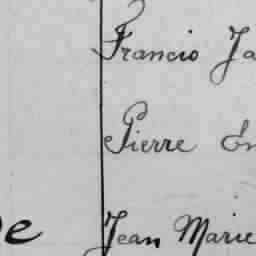 Francis Ja
Pierre Em
e
Jean Marie